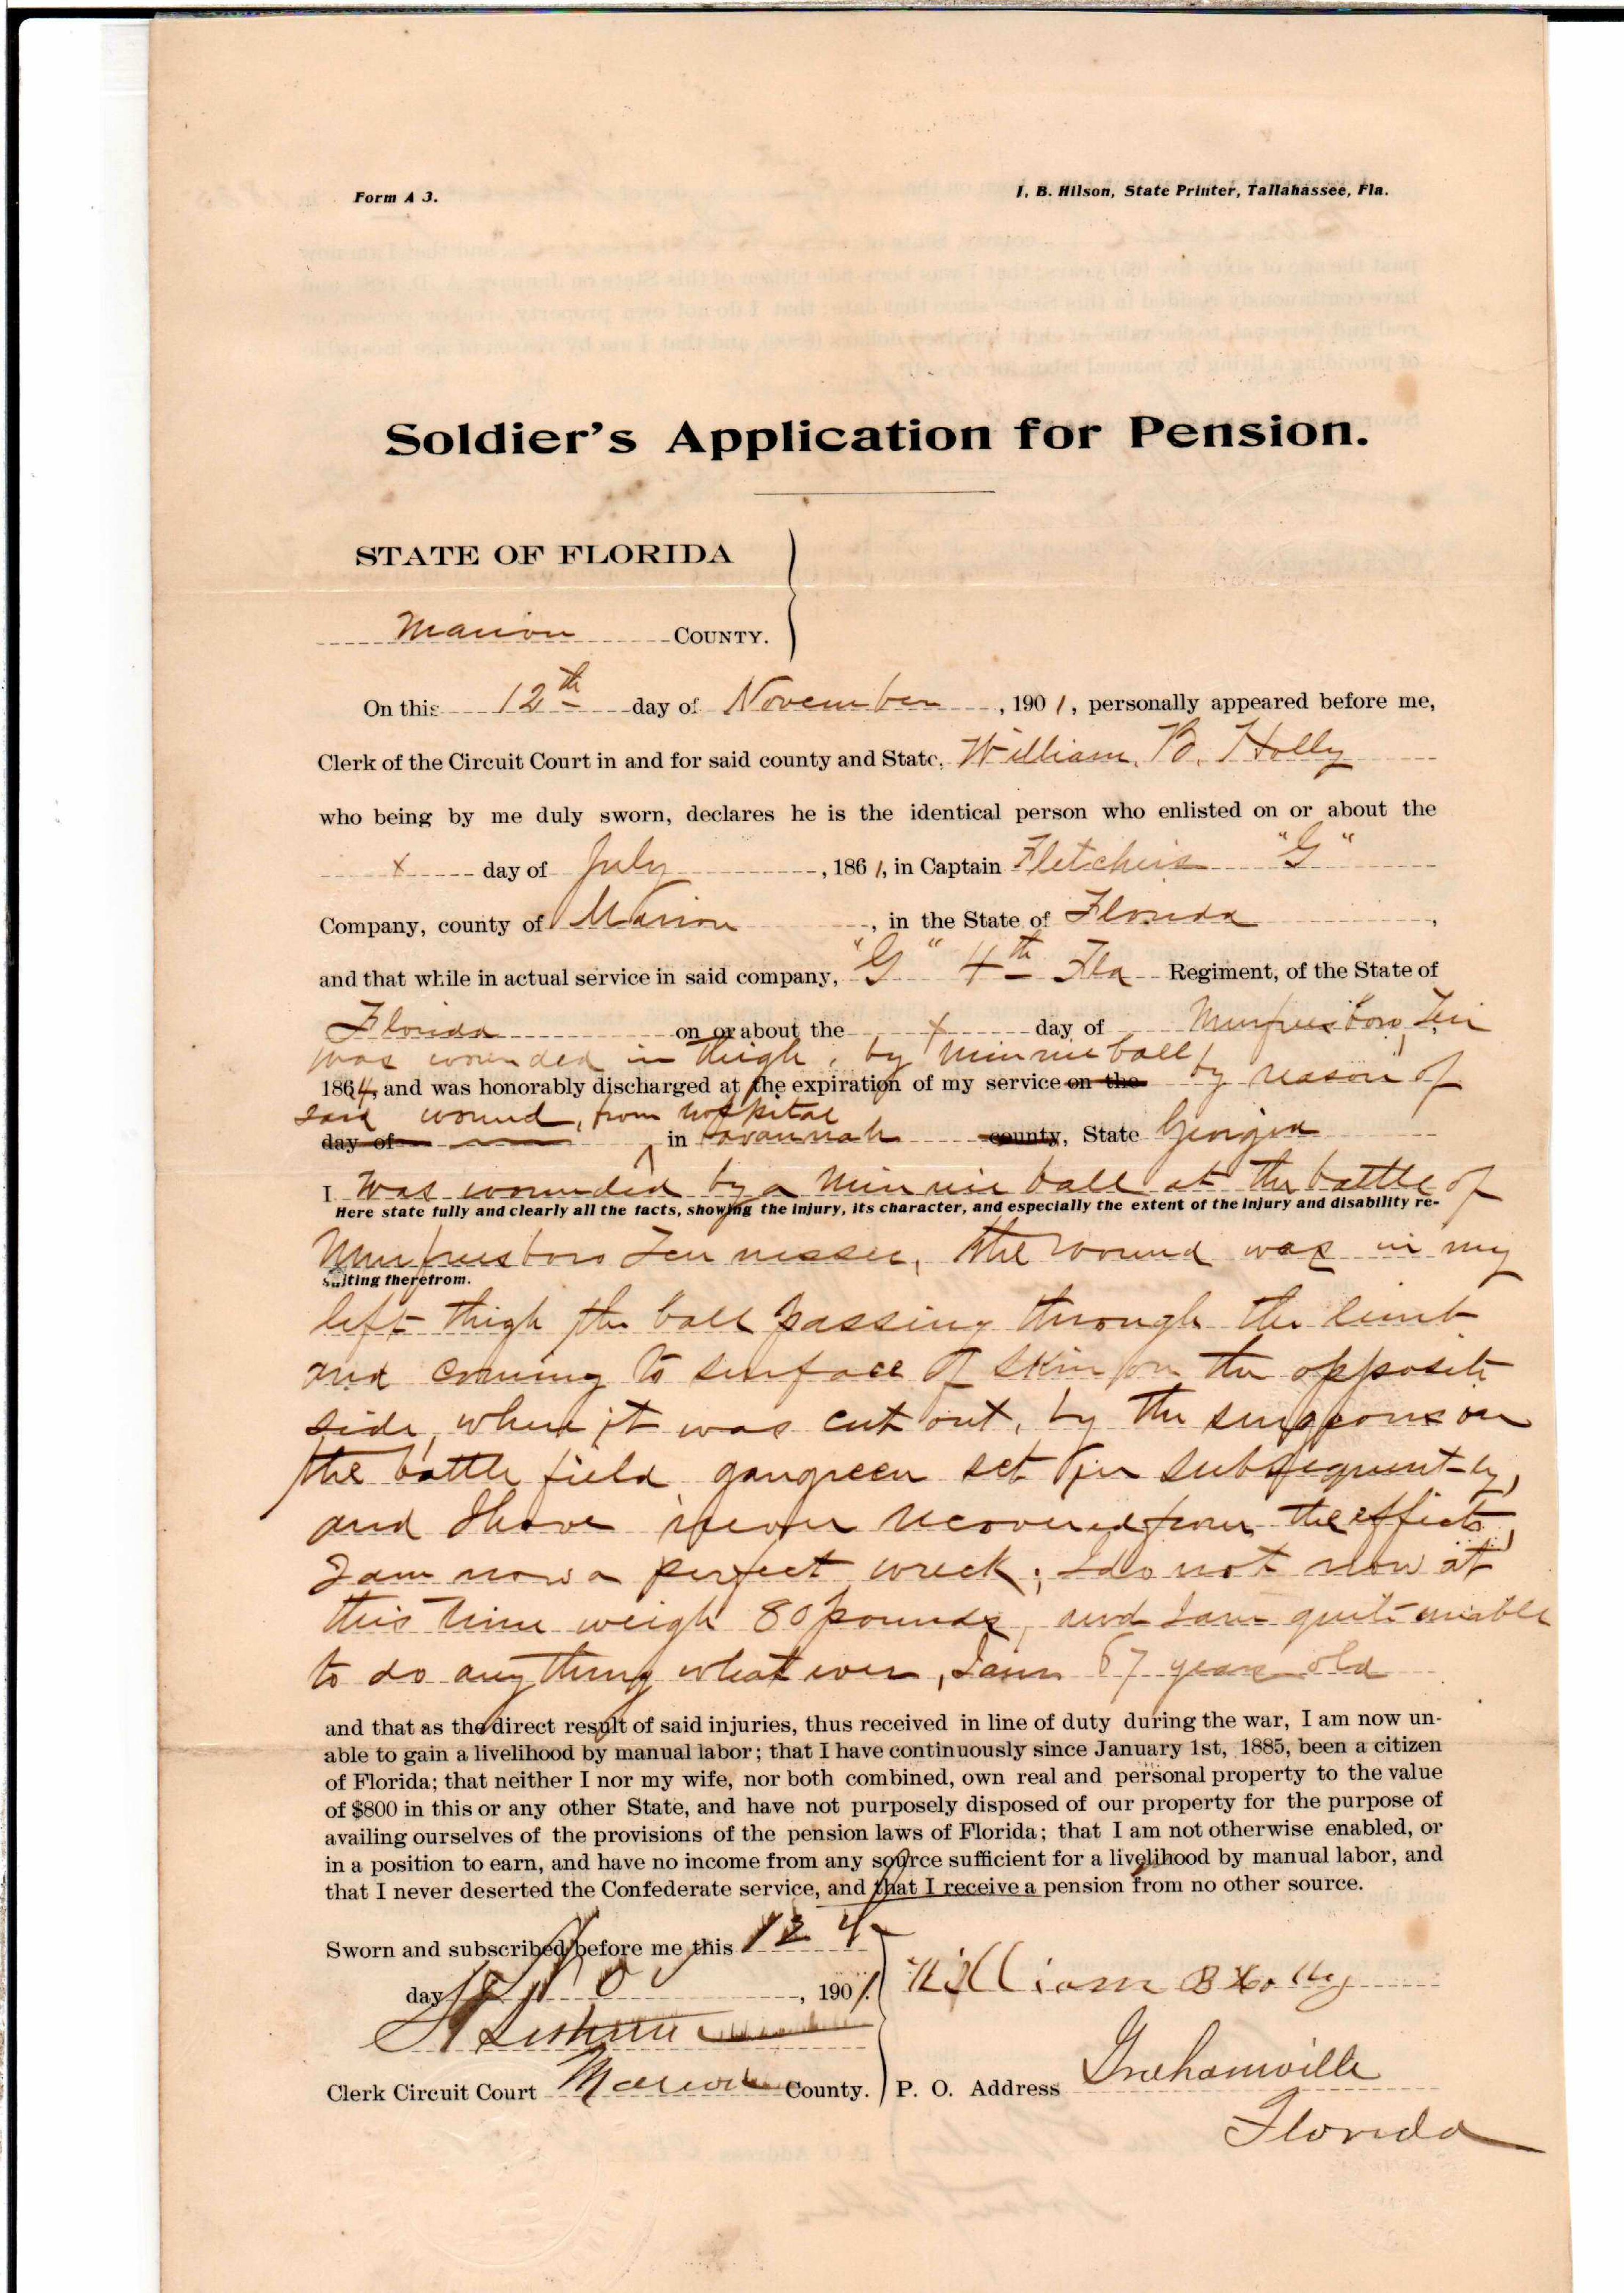 Form A 3.
I. B. Hilson, State Printer, Tallahassee, Fla.
Soldier's Application for Pension.
STATE OF FLORIDA
Marion COUNTY.
On this 12th day of November, 1901, personally appeared before me,
Clerk of the Circuit Court in and for said county and State, William. B. Holly
who being by me duly sworn, declares he is the identical person who enlisted on or about the
x day of July, 1861, in Captain Fletchers "G"
Company, county of Marion, in the State of Florida,
and that while in actual service in said company, "G" 4th Fla Regiment, of the State of
Florida on or about the x day of Murfreesboro, Ten
was wounded in thigh, by minnie ball
1864, and was honorably discharged at the expiration of my service on the by reason of
said wound, from hospital
day of in Savannah county, State Georgia
I was wounded by a Minnie ball at the battle of
Here state fully and clearly all the facts, showing the injury, its character, and especially the extent of the injury and disability re-
Murfreesboro Tennessee, the wound was in my
sulting therefrom.
left thigh the ball passing through the limb
and coming to surface of skin on the opposite
side, where it was cut out, by the surgeons on
the battle field, gangreen set in subsequently,
and I have never recovered from the effects,
I am now a perfect wreck; I do not now at
this time weigh 80 pounds, and I am quite unable
to do any thing what ever, I am 67 years old
and that as the direct result of said injuries, thus received in line of duty during the war, I am now un-
able to gain a livelihood by manual labor; that I have continuously since January 1st, 1885, been a citizen
of Florida; that neither I nor my wife, nor both combined, own real and personal property to the value
of $800 in this or any other State, and have not purposely disposed of our property for the purpose of
availing ourselves of the provisions of the pension laws of Florida; that I am not otherwise enabled, or
in a position to earn, and have no income from any source sufficient for a livelihood by manual labor, and
that I never deserted the Confederate service, and that I receive a pension from no other source.
Sworn and subscribed before me this 12th
day of Nov, 1901.
William B Holly
Clerk Circuit Court Marion County.
P. O. Address Grahamville
Florida